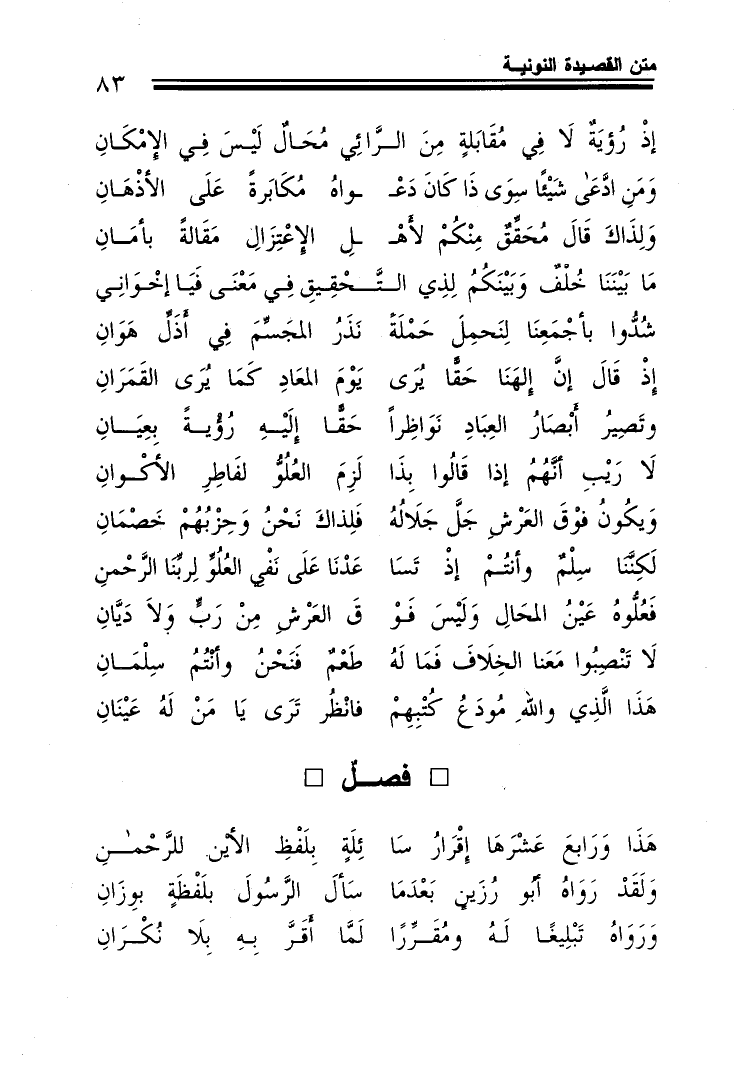 متن القصيدة النونية
٨٣
إذْ رُؤيَةٌ لَا فِي مُقَابَلةٍ مِنَ الـرَّائِي مُحَالٌ لَيْسَ فِـي الإمْكَـانِ
وَمَنِ ادَّعَى شَيْئًا سِوَى ذَا كَانَ دَعْـ ـواهُ مُكَابَرةً عَلَى الأذْهَـانِ
وَلِذَاكَ قَالَ مُحَقِّقٌ مِنْكُمْ لأهْـ ـلِ الإعْتِزَالِ مَقَالةً بأمَـانِ
مَا بَيْنَنَا خُلْفٌ وَبَيْنَكُمُ لِذِي التَّـحْقِيقِ فِـي مَعْنَـى فَيَـا إخْوَانِـي
شُدُّوا بأجْمَعِنَا لِنَحمِلَ حَمْلَةً نَذَرُ المجَسِّمَ فِي أذَلِّ هَوَانِ
إذْ قَالَ إنَّ إلهَنَا حَقًّا يُرَى يَوْمَ المعَادِ كَمَا يُرَى القَمَرانِ
وتَصِيرُ أبْصَارُ العِبَادِ نَوَاظِراً حَقًّـا إلَيْـهِ رُؤْيـةً بِعِيَـانِ
لَا رَيْبِ أنَّهُمُ إذا قَالُوا بِذَا لَزِمَ العُلُوُّ لفَاطِرِ الأكْـوانِ
وَيَكُونُ فَوْقَ العَرْشِ جَلَّ جَلَالُهُ فَلِذاكَ نَحْنُ وَحِزْبُهُمْ خَصْمَانِ
لَكِنَّنَا سِلْمٌ وأنتُـمْ إذْ تَسَا عَدْنَا عَلَى نَفْيِ العُلُوِّ لِربِّنَا الرَّحْمنِ
فَعُلُوهُ عَيْنُ المحَالِ وَلَيْسَ فَـوْ قَ العَرْشِ مِنْ رَبٍّ وَلاَ دَيَّانِ
لَا تَنْصِبُوا مَعَنا الخِلَافَ فَمَا لَهُ طَعْمٌ فَنَحْنُ وأنْتُمُ سِلْمَـانِ
هَذَا الَّذِي واللهِ مُودَعُ كُتْبِهِمْ فانْظُر تَرَى يَا مَنْ لَهُ عَيْنَانِ
□ فصـلٌ □
هَذَا وَرَابِعَ عَشْرَهَا إقْرَارُ سَا ئِلَةٍ بِلَفْظِ الأيْنِ للرَّحْمـٰنِ
وَلَقَدْ رَوَاهُ أبُو رُزَينٍ بَعْدَمَا سَألَ الرَّسُولَ بلَفْظَةٍ بوِزَانِ
وَرَوَاهُ تَبْلِيغًـا لَـهُ ومُقَـرِّرًا لَمَّا أقَرَّ بِـهِ بِلَا نُكْـرَانِ